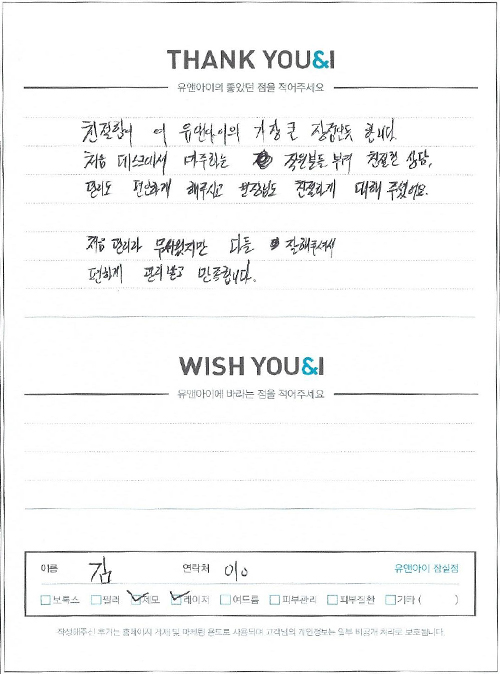 THANK YOU&I
유앤아이의 좋았던 점을 적어주세요
친절함이 이 유앤아이의 가장 큰 장점인듯 합니다
처음 데스크에서 마주하는 직원분들 부터 친절한 상담,
편안하게 해주시고 원장님도 친절하게 대해 주셨어요.
처음 관리라 무서웠지만 다들 잘해주셔서
편하게 관리 받고 만족합니다.
WISH YOU&I
유앤아이에 바라는 점을 적어주세요
이름 김 연락처 010 유앤아이 잠실점
보톡스 필러 제모 레이저 여드름 피부관리 피부질환 기타 ( )
작성해주신 후기는 홈페이지 게재 및 마케팅 용도로 사용되며 고객님의 개인정보는 일부 비공개 처리로 보호됩니다.